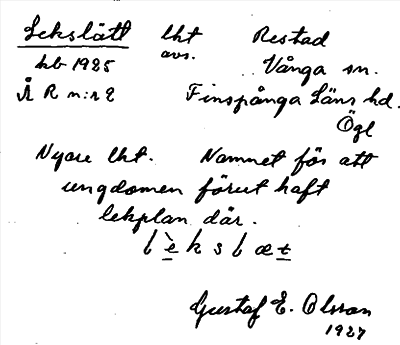 Lekslätt lht Restad
hb 1925 avs. Vånga sn.
Å R n:r 2 Finspånga Läns hd.
Ögl
Nyare lht. Namnet för att
ungdomen förut haft
lekplan där.
lèkslæt
Gustaf E. Olsson
1927